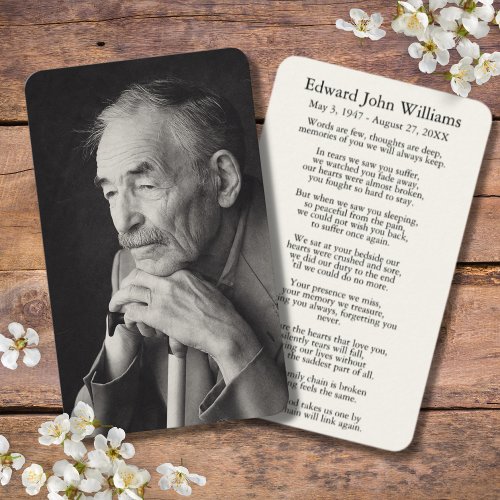 Edward John Williams
May 3, 1947 - August 27, 20XX
Words are few, thoughts are deep,
memories of you we will always keep.
In tears we saw you suffer,
we watched you fade away,
our hearts were almost broken,
you fought so hard to stay.
But when we saw you sleeping,
so peaceful from the pain,
we could not wish you back,
to suffer once again.
We sat at your bedside our
hearts were crushed and sore,
we did our duty to the end
'til we could do no more.
Your presence we miss,
your memory we treasure,
you always, forgetting you
never.
the hearts that love you,
silently tears will fall,
our lives without
the saddest part of all.
family chain is broken
feels the same.
takes us one by
chain will link again.